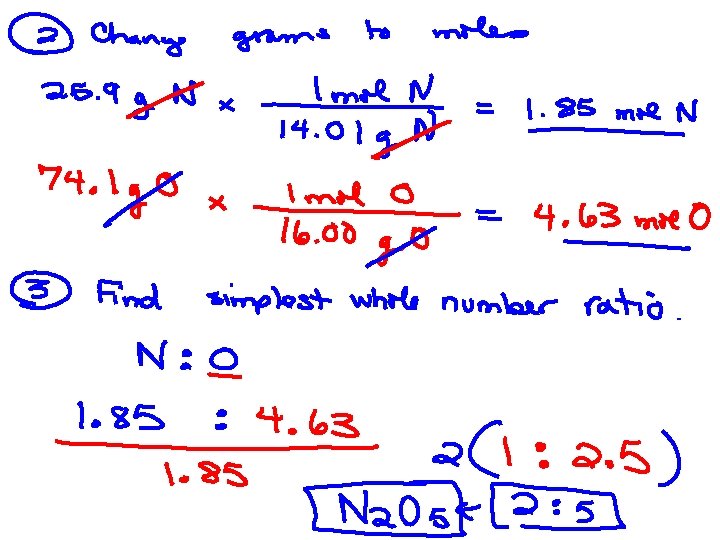 ② Change grams to moles
25.9 g N × 1 mol N / 14.01 g N = 1.85 mol N
74.1 g O × 1 mol O / 16.00 g O = 4.63 mol O
③ Find simplest whole number ratio.
N : O
1.85 : 4.63
1.85
2(1 : 2.5)
N₂O₅ ← 2 : 5